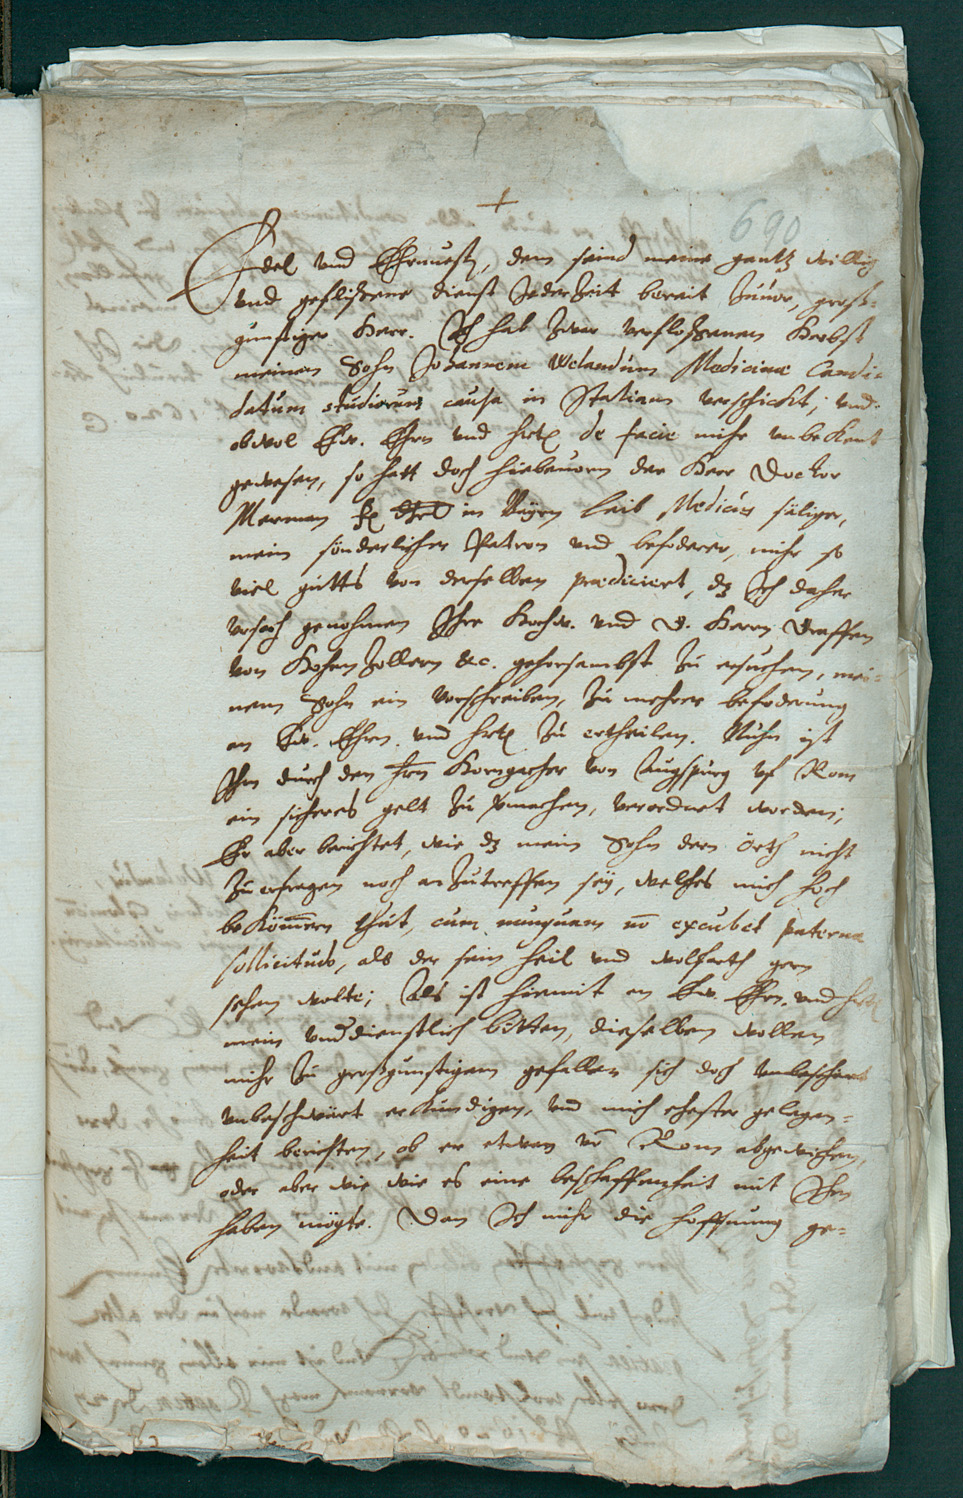 +
690
Edel und Ehrnuest, dem seind meine gantz willig
und geflißene dienst Jederzeit bereit zuuor, groß-
gunstiger Herr. Ich hab zwar verfloßenen Herbst
meinen Sohn Johannem Welandum Medicinae Candi-
datum studiorum causa in Italiam verschickt, und
obwol Ew. Ehrn und de facie mihr unbekant
gewesen, so hatt doch hiebeuorn der Herr Doctor
Merman in Bayrn leib Medicus säliger,
mein sonderlicher Patron und beförderer, mihr so
viel gutts von derselben praediciert, dz Ich daher
vrsach genohmen Ihre Hochw. und G. Herrn Graffen
von Hohen Zollern &c. gehorsambst zu ersuchen, mei-
nem Sohn ein vorschreiben, zu mehrer beforderung
an Ew. Ehrn. und zu ertheilen. Nuhn ist
Ihm durch den Hrn von Augspurg vf Rom
ein sicheres gelt zu machen, verordnet worden;
Er aber berichtet, wie dz mein Sohn dern örth nicht
zu erfragen noch anzutreffen sey, welches mich hoch
bekömmern thut, cum nunquam non excubet paterna
sollicitudo, als der sein heil und wolfarth gern
sehen wolte; Als ist hiemit an Ew. Ehrn. und
mein dienstlich bitten, dieselben wollen
mihr zu großgunstigem gefallen sich doch
unbeschwärt erkundigen, und mich ehester gelegen-
heit berichten, ob er etwan von Rom abgewichen,
oder aber wie wie es eine beschaffenheit mit Ihm
haben mögte. Dan Ich mihr die hoffnung ge-